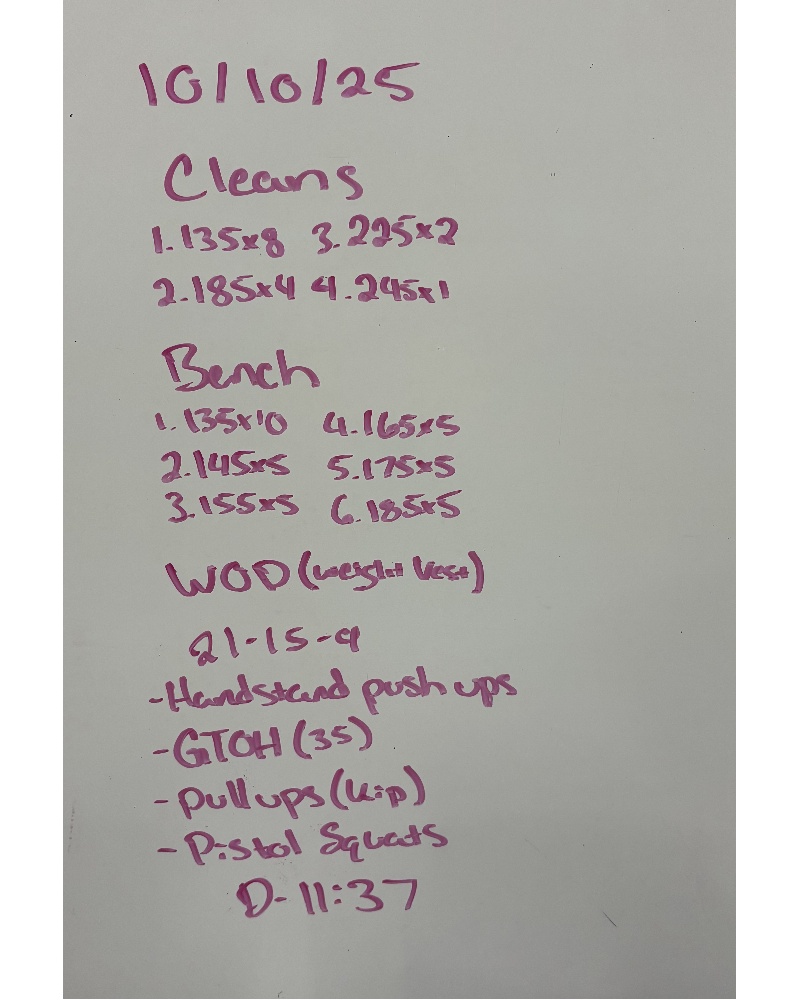 10/10/25
Cleans
1. 135x8 3. 225x2
2. 185x4 4. 245x1
Bench
1. 135x10 4. 165x5
2. 145x5 5. 175x5
3. 155x5 6. 185x5
WOD (weight vest)
21-15-9
- Handstand push ups
- GTOH (35)
- pull ups (kip)
- Pistol Squats
D- 11:37